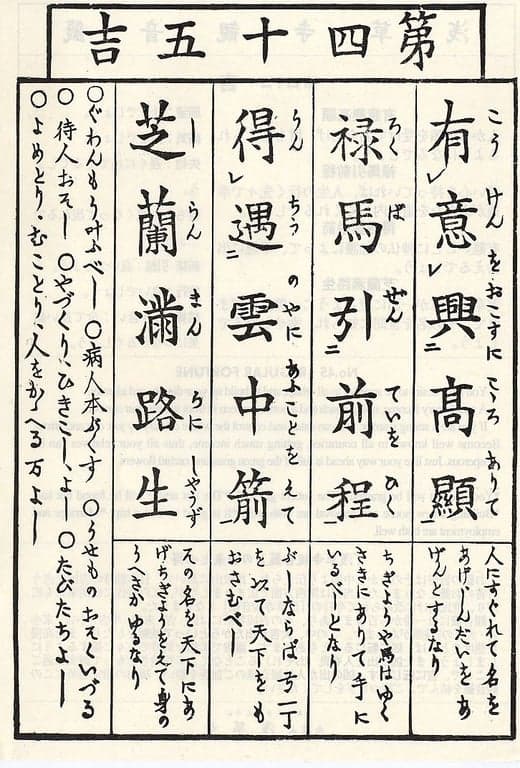 第四十五吉
こうけんをおこすにこころありて
有レ意レ興二高顯一
ろばぜんていをひ
祿馬引二前程一
うんちうのやにあふことをえて
得レ遇二雲中箭一
しらんまんろにしやうず
芝蘭満路生
人にすぐれて名を
んだいをあ
げんとするなり
ちぎようや馬はゆく
さきにありて手に
いるべしとなり
ぶしならば弓一丁
を以て天下をも
おさむべし
その名を天下にあ
げちぎようをえて身の
うへさかゆるなり
○ぐわんもう叶ふべし ○病人本ぷくす ○うせものおそくいづる
○待人おそし ○やづくり、ひきこし、よし ○たびたちよし
○よめとり、むことり、人をかゝへる万よし